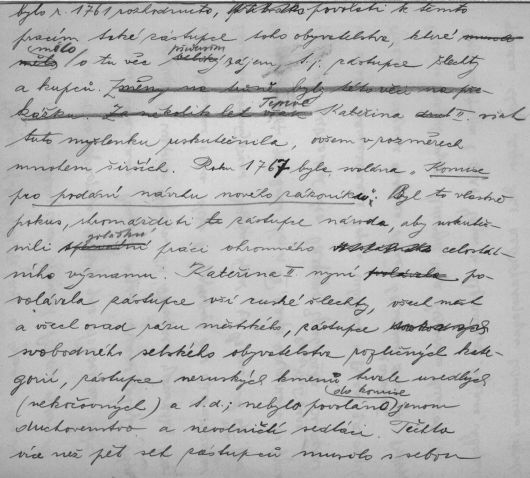 bylo r. 1761 rozhodnuto, povolati k těmto
pracím také zástupce toho obyvatelstva, které
mělo
o tu věc především zájem, t.j. zástupce šlechty
a kupců. Změny na trůně byly této věci na pře-
kážku. Za několik let však Teprve Kateřina II. však
tuto myšlenku uskutečnila, ovšem v rozměrech
mnohem širších. Roku 1767 byla volána „Komise
pro podání návrhu nového zákoníku“; Byl to vlastně
pokus, shromážditi zástupce národa, aby uskuteč-
nili zvláštní práci ohromného celostát-
ního významu. Kateřina II. nyní po-
volávala zástupce vší ruské šlechty, všech měst
a všech osad rázu městského, zástupce
svobodného selského obyvatelstva různých kate-
gorií, zástupce neruských kmenů trvale usedlých
(nekočovných) a t.d.; nebylo povoláno (do komise) jenom
duchovenstvo a nevolničtí sedláci. Těchto
více než pět set zástupců muselo s sebou